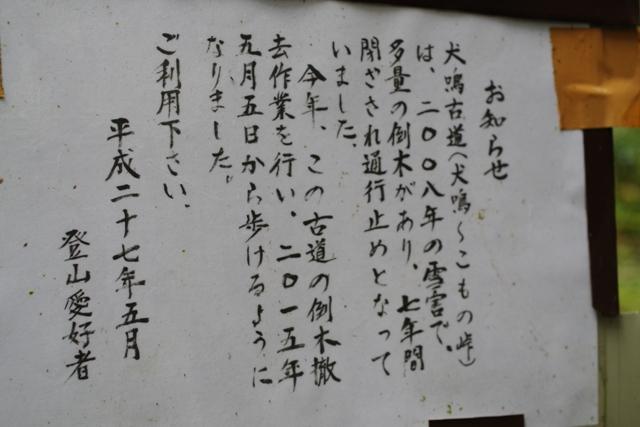 お知らせ
犬鳴古道（犬鳴～こもの峠）
は、二〇〇八年の雪害で、
多量の倒木があり、七年間
閉ざされ通行止めとなって
いました。
今年、この古道の倒木撤
去作業を行い、二〇一五年
五月五日から歩けるように
なりました。
ご利用下さい、
平成二十七年五月
登山愛好者